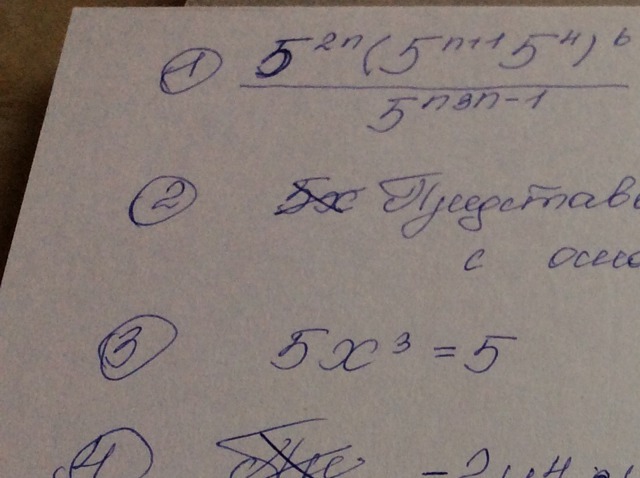 ① 5²ⁿ(5ⁿ⁺¹5⁴)⁶
5ⁿ³ⁿ⁻¹
② Представь
с осно
③ 5x³ = 5
④